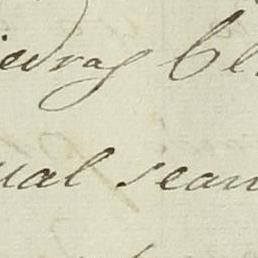 iedras Cl
ual sean